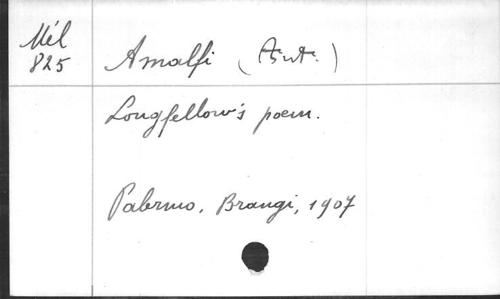 Mél
825
Amalfi (Ant.)
Longfellow's poem.
Palermo, Brangi, 1907